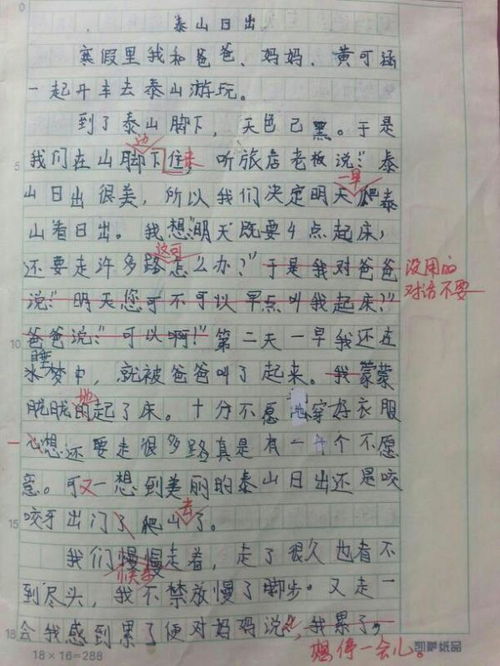 泰山日出
寒假里我和爸爸、妈妈、黄可涵
一起开车去泰山游玩。
到了泰山脚下，天色已黑。于是
边
我们在山脚下住来，听旅店老板说："泰
一早
山日出很美，所以我们决定明天爬泰
山看日出。我想"明天既要4点起床，
这可
还要走许多路怎么办？"于是我对爸爸
没用的
对话不要
说："明天您可不可以早点叫我起床？"
爸爸说："可以啊！"第二天一早我还在
睡
梦中，就被爸爸叫了起来。我蒙蒙
地
胧胧的起了床。十分不愿 穿好衣服
心想还要走很多路真是有一千个不愿
意。可又一想到美丽的泰山日出还是咬
去
咬牙出门了爬山了。
我们慢慢走着，走了很久也看不
到尽头，我不禁放慢了脚步。又走一
会我感到累了便对妈妈说："我累了，
想停一会儿。
18×16=288
凯萨纸品
5
10
15
18